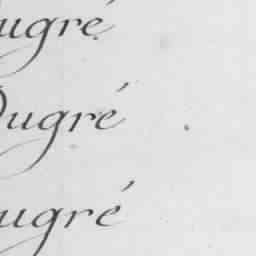 ugré
Dugré
ugré